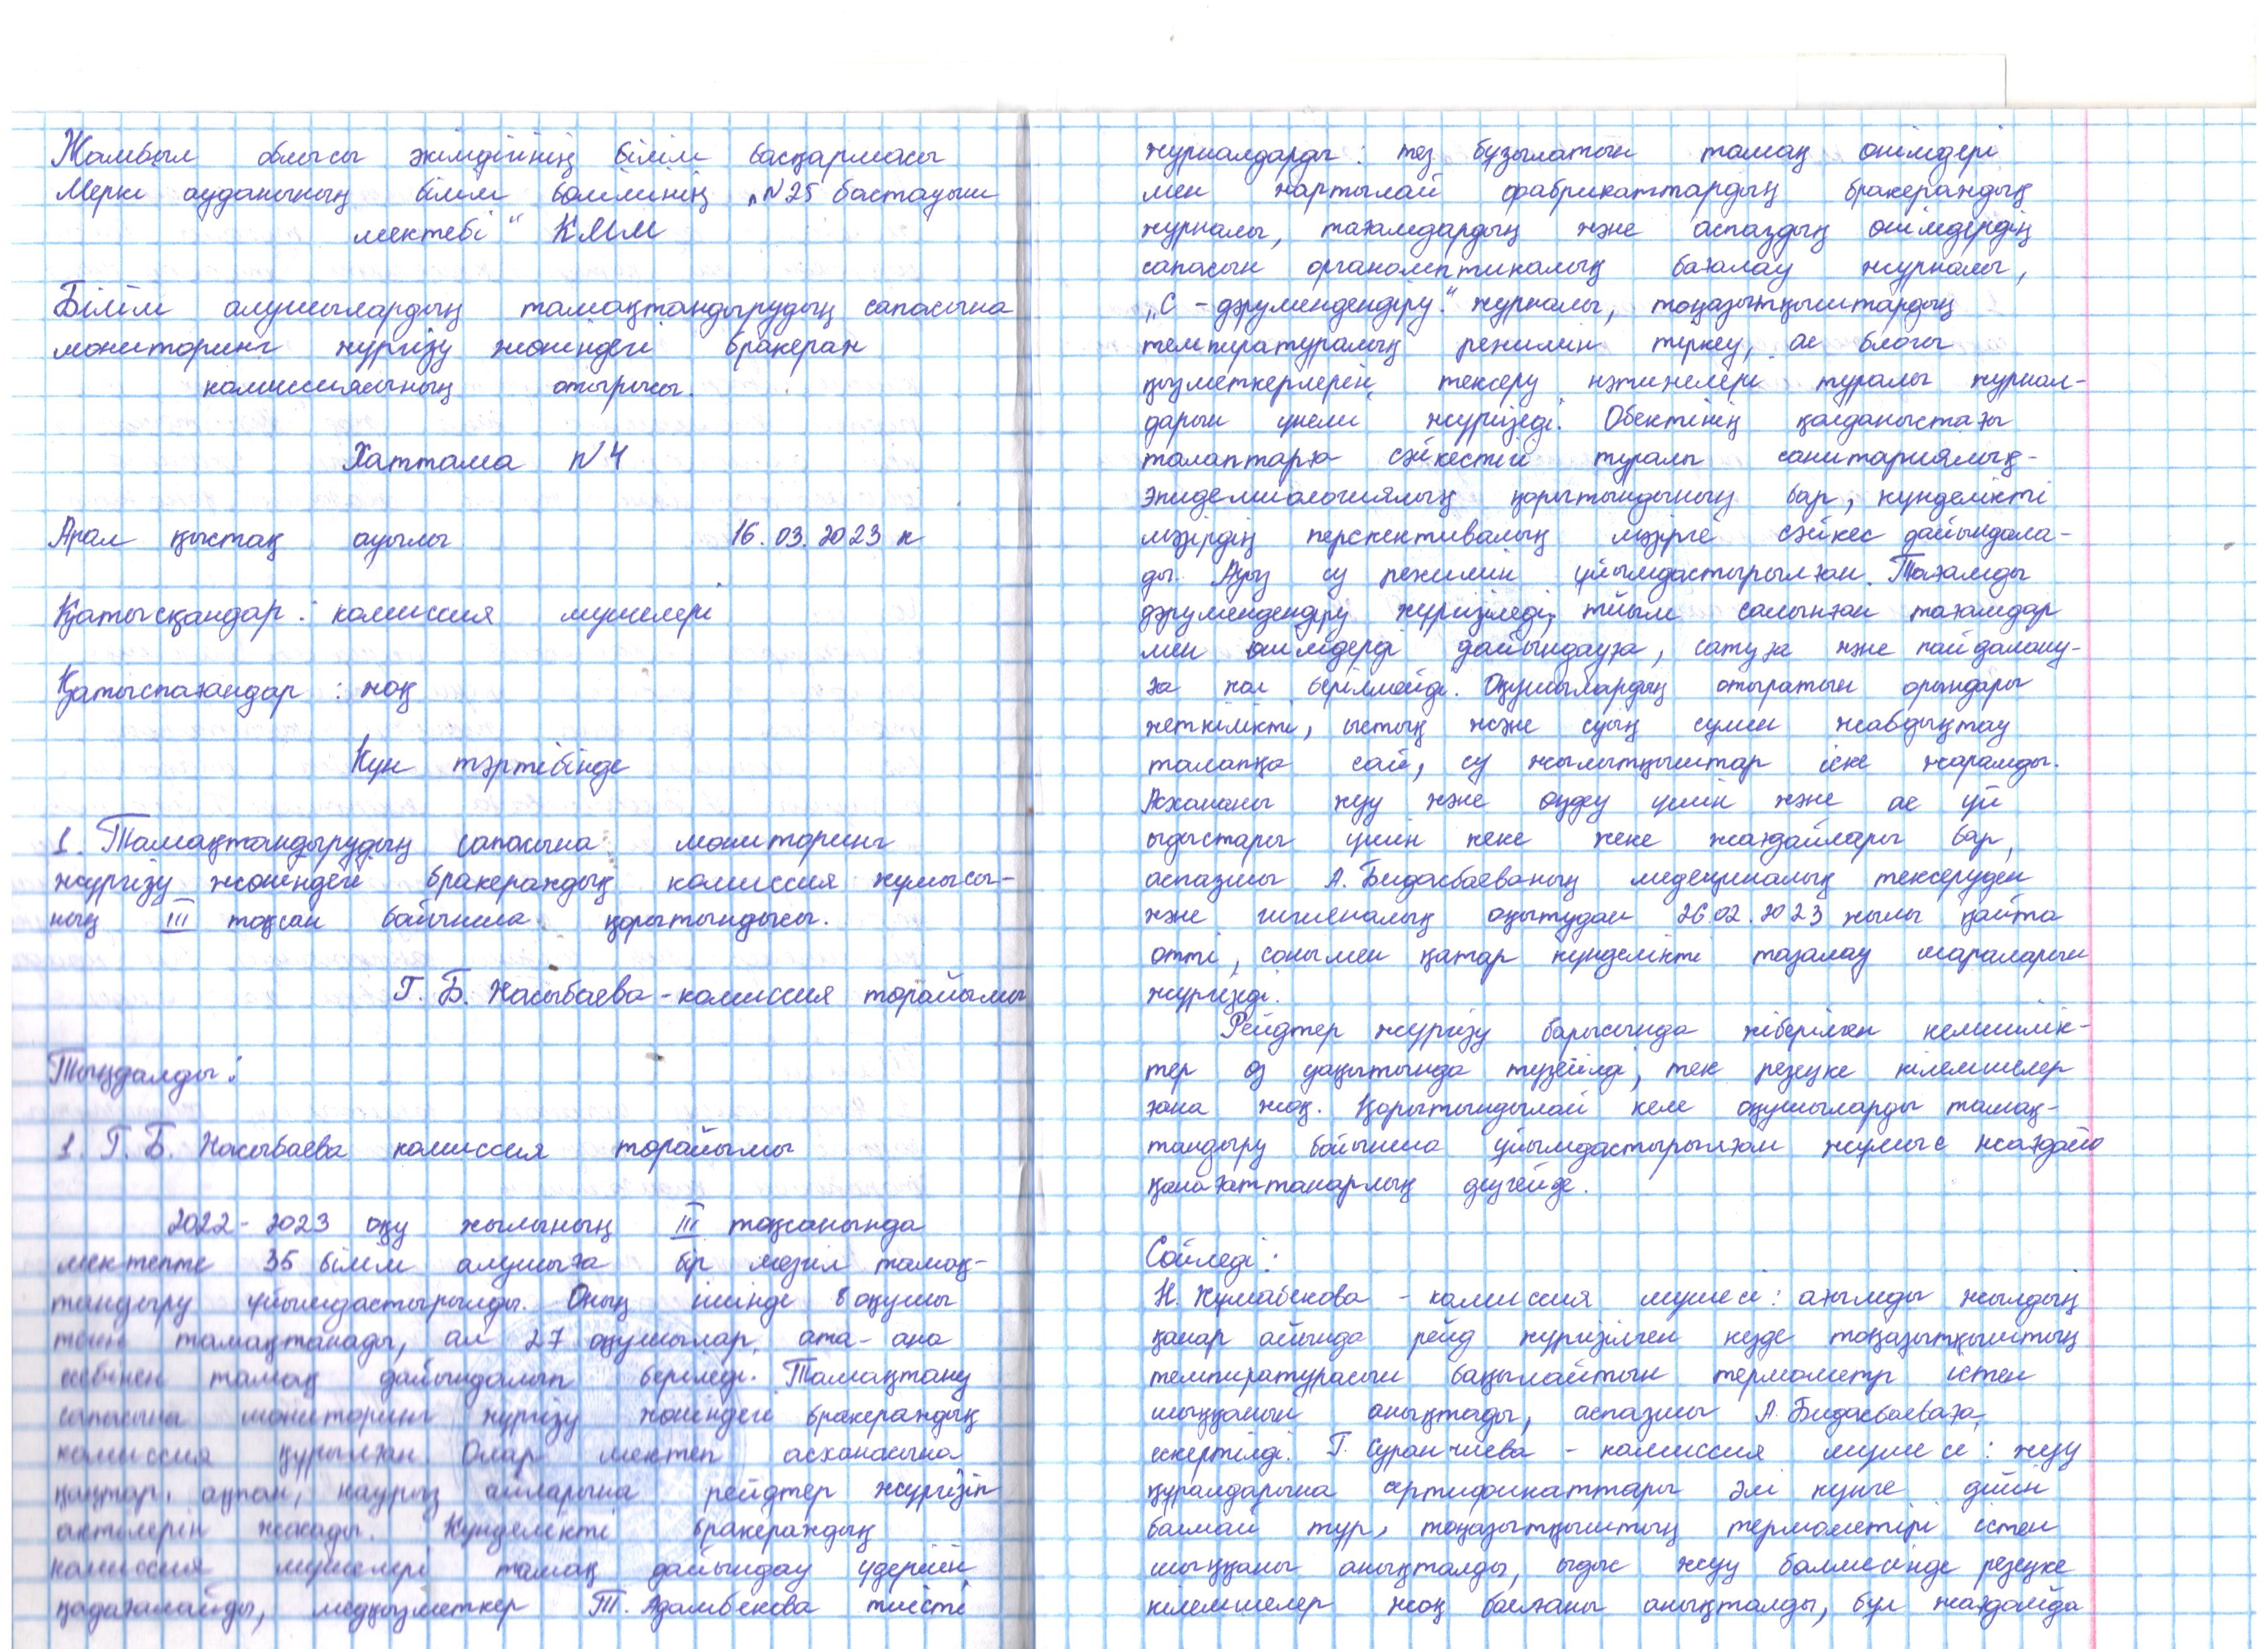 Жамбыл облысы әкімдігінің білім басқармасы
Меркі ауданының білім бөлімінің „№25 бастауыш
мектебі“ КММ
Білім алушылардың тамақтандырудың сапасына
мониторинг жүргізу жөніндегі бракераж
комиссиясының отырысы.
Хаттама №4
Арал қыстақ ауылы 16.03.2023 ж
Қатысқандар: комиссия мүшелері
Қатыспағандар: жоқ
Күн тәртібінде
1. Тамақтандырудың сапасына мониторинг
жүргізу жөніндегі бракераждық комиссия жұмысы-
ның III тоқсан бойынша қорытындысы.
Г. Б. Насыбаева - комиссия төрайымы
Тыңдалды:
1. Г. Б. Насыбаева комиссия төрайымы
2022-2023 оқу жылының III тоқсанында
мектепте 35 білім алушыға бір мезгіл тамақ-
тандыру ұйымдастырылды. Оның ішінде 8 оқушы
тегін тамақтанады, ал 27 оқушылар ата-ана
есебінен тамақ дайындалып беріледі. Тамақтану
сапасына мониторинг жүргізу жөніндегі бракераждық
комиссия құрылған. Олар мектеп асханасына
қаңтар, ақпан, наурыз айларына рейдтер жүргізіп
актілерін жасады. Күнделікті бракераждық
комиссия мүшелері тамақ дайындау үдерісін
қадағалайды, медқызметкер Т. Адамбекова тиісті
журналдарды: тез бұзылатын тамақ өнімдері
мен жартылай фабрикаттардың бракераждық
журналы, тағамдардың және аспаздық өнімдердің
сапасын органолептикалық бағалау журналы,
„С - дәрумендендіру“ журналы, тоңазытқыштардың
температуралық режимін тіркеу, ас блогы
қызметкерлерін тексеру нәтижелері туралы журнал-
дарын үнемі жүргізеді. Обектінің қолданыстағы
талаптарға сәйкестігі туралы санитариялық-
эпидемиологиялық қорытындының бар, күнделікті
мәзірдің перспективалық мәзірге сәйкес дайындала-
ды. Ауыз су режимін ұйымдастырылған. Тағамды
дәрумендендіру жүргізіледі, тйым салынған тағамдар
мен өнімдерді дайындауға, сатуға және пайдалану-
ға жол берілмейді. Оқушылардың отыратын орындары
жеткілікті, ыстық және суық сумен жабдықтау
талапқа сай, су жылытқыштар іске жарамды.
Асхананы жуу және өңдеу үшін және ас үй
ыдыстары үшін жеке жеке жағдайлары бар,
аспазшы А. Бидасбаеваның медециналық тексеруден
және гигиеналық оқытудан 26.02.2023 жылы қайта
өтті, сонымен қатар күнделікті тазалау шараларын
жүргізеді.
Рейдтер жүргізу барысында жіберілген кемшілік-
тер өз уақытында түзейілді, тек резеңке кілемшелер
ғана жоқ. Қорытындылай келе оқушыларды тамақ-
тандыру бойынша ұйымдастырылған жұмыс жағдайы
қанағаттанарлық деңгейде.
Сөйледі:
Н. Жумабекова - комиссия мүшесі: ағымды жылдың
қаңар айында рейд жүргізілген кезде тоңазытқыштың
температурасын бақылайтын термометр істен
шыққанын анықтады, аспазшы А. Бидасбаеваға
ескертілді. Г. Суранчиева - комиссия мүшесі: жуу
құралдарына сертификаттары әлі күнге дйін
болмай тұр, тоңазытқыштың термометірі істен
шыққаны анықталды, ыдыс жуу бөлмесінде резеңке
кілемшелер жоқ болғаны анықталды, бұл жағдайда